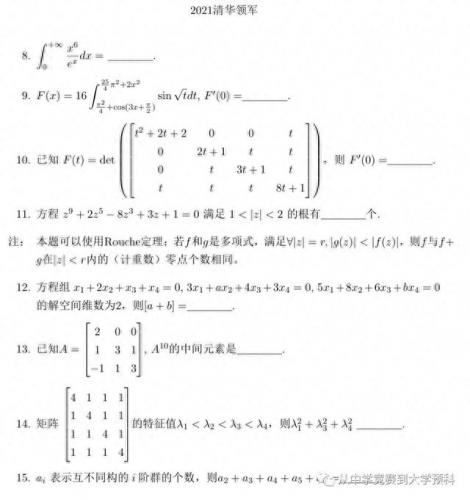 2021清华领军
8. ∫₀^{+∞} x⁶/eˣ dx = ______.
9. F(x) = 16 ∫_{π²/4+cos(3x+π/2)}^{25/4 π²+2x²} sin √t dt, F′(0) =______.
10. 已知 F(t) = det ([t² + 2t + 2 0 0 t
0 2t + 1 t t
0 t 3t + 1 t
t t t 8t + 1]) 。则 F′(0) =______.
11. 方程 z⁹ + 2z⁵ − 8z³ + 3z + 1 = 0 满足 1 < |z| < 2 的根有______个.
注: 本题可以使用Rouche定理:若f和g是多项式,满足∀|z| = r, |g(z)| < |f(z)|,则f与f+
g在|z| < r内的(计重数)零点个数相同。
12. 方程组 x₁ + 2x₂ + x₃ + x₄ = 0, 3x₁ + ax₂ + 4x₃ + 3x₄ = 0, 5x₁ + 8x₂ + 6x₃ + bx₄ = 0
的解空间维数为2,则[a + b] =______.
13. 已知A = [2 0 0
1 3 1
−1 1 3], A¹⁰的中间元素是______.
14. 矩阵 [4 1 1 1
1 4 1 1
1 1 4 1
1 1 1 4] 的特征值λ₁ < λ₂ < λ₃ < λ₄,则λ₁² + λ₃² + λ₄² ______.
15. aᵢ 表示互不同构的 i 阶群的个数,则a₂ + a₃ + a₄ + a₅ +
从中学竞赛到大学预科